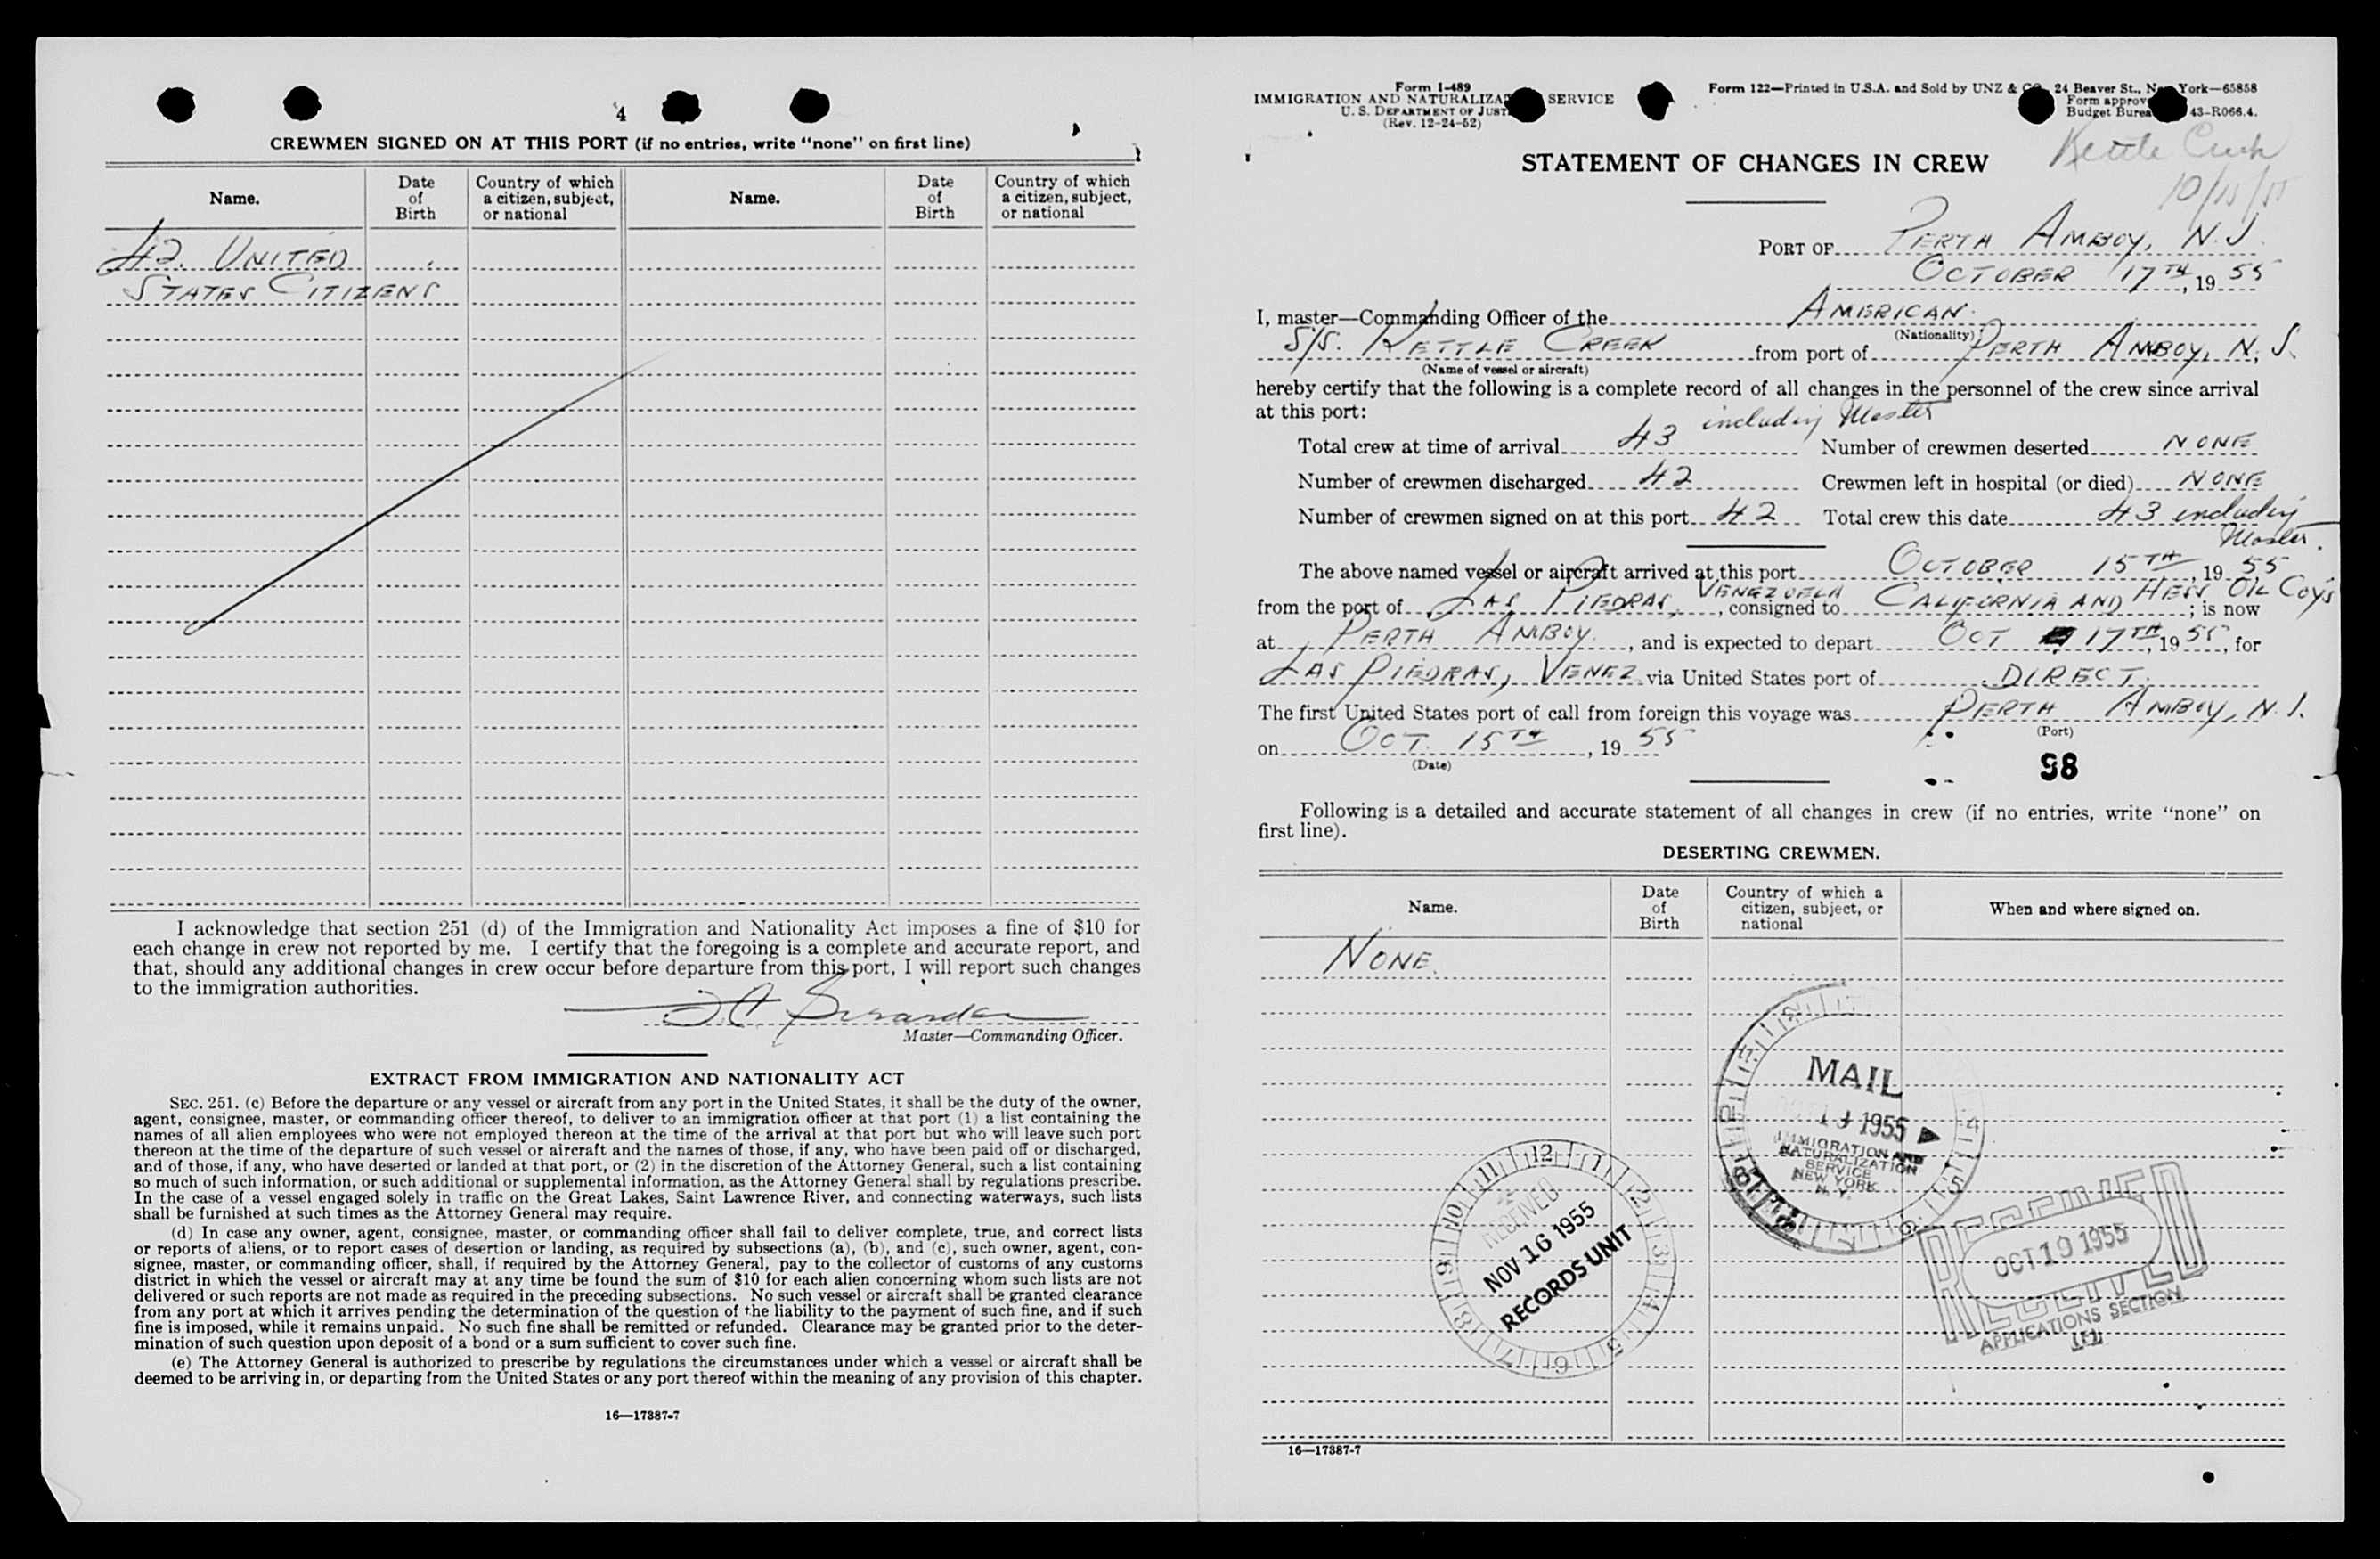 4
CREWMEN SIGNED ON AT THIS PORT (if no entries, write "none" on first line)
Name.
Date of Birth
Country of which a citizen, subject, or national
Name.
Date of Birth
Country of which a citizen, subject, or national
42. UNITED
STATES CITIZENS
I acknowledge that section 251 (d) of the Immigration and Nationality Act imposes a fine of $10 for
each change in crew not reported by me. I certify that the foregoing is a complete and accurate report, and
that, should any additional changes in crew occur before departure from this port, I will report such changes
to the immigration authorities.
Master—Commanding Officer.
EXTRACT FROM IMMIGRATION AND NATIONALITY ACT
SEC. 251. (c) Before the departure or any vessel or aircraft from any port in the United States, it shall be the duty of the owner,
agent, consignee, master, or commanding officer thereof, to deliver to an immigration officer at that port (1) a list containing the
names of all alien employees who were not employed thereon at the time of the arrival at that port but who will leave such port
thereon at the time of the departure of such vessel or aircraft and the names of those, if any, who have been paid off or discharged,
and of those, if any, who have deserted or landed at that port, or (2) in the discretion of the Attorney General, such a list containing
so much of such information, or such additional or supplemental information, as the Attorney General shall by regulations prescribe.
In the case of a vessel engaged solely in traffic on the Great Lakes, Saint Lawrence River, and connecting waterways, such lists
shall be furnished at such times as the Attorney General may require.
(d) In case any owner, agent, consignee, master, or commanding officer shall fail to deliver complete, true, and correct lists
or reports of aliens, or to report cases of desertion or landing, as required by subsections (a), (b), and (c), such owner, agent, con-
signee, master, or commanding officer, shall, if required by the Attorney General, pay to the collector of customs of any customs
district in which the vessel or aircraft may at any time be found the sum of $10 for each alien concerning whom such lists are not
delivered or such reports are not made as required in the preceding subsections. No such vessel or aircraft shall be granted clearance
from any port at which it arrives pending the determination of the question of the liability to the payment of such fine, and if such
fine is imposed, while it remains unpaid. No such fine shall be remitted or refunded. Clearance may be granted prior to the deter-
mination of such question upon deposit of a bond or a sum sufficient to cover such fine.
(e) The Attorney General is authorized to prescribe by regulations the circumstances under which a vessel or aircraft shall be
deemed to be arriving in, or departing from the United States or any port thereof within the meaning of any provision of this chapter.
16—17387-7
Form I-489
IMMIGRATION AND NATURALIZA SERVICE
U. S. DEPARTMENT OF JUST
(Rev. 12-24-52)
Form 122—Printed in U.S.A. and Sold by UNZ & CO., 24 Beaver St., New York—65858
Form approv
Budget Burea 43-R066.4.
Kettle Creek
10/15/55
STATEMENT OF CHANGES IN CREW
PORT OF PERTH AMBOY, N.J.
OCTOBER 17TH, 1955
I, master—Commanding Officer of the AMERICAN
(Nationality)
S/S. KETTLE CREEK from port of PERTH AMBOY, N.J.
(Name of vessel or aircraft)
hereby certify that the following is a complete record of all changes in the personnel of the crew since arrival
at this port:
Total crew at time of arrival 43 including Master Number of crewmen deserted NONE
Number of crewmen discharged 42 Crewmen left in hospital (or died) NONE
Number of crewmen signed on at this port 42 Total crew this date 43 including Master.
The above named vessel or aircraft arrived at this port OCTOBER 15TH, 1955
from the port of LAS PIEDRAS, VENEZUELA, consigned to CALIFORNIA AND HESS OIL COY'S; is now
at PERTH AMBOY, and is expected to depart OCT 17TH, 1955, for
LAS PIEDRAS, VENEZ. via United States port of DIRECT.
The first United States port of call from foreign this voyage was PERTH AMBOY, N.J.
(Port)
on OCT. 15TH, 1955
(Date)
98
Following is a detailed and accurate statement of all changes in crew (if no entries, write "none" on
first line).
DESERTING CREWMEN.
Name.
Date of Birth
Country of which a citizen, subject, or national
When and where signed on.
NONE.
MAIL
1955
IMMIGRATION AND
NATURALIZATION
SERVICE
NEW YORK
N. Y.
RECEIVED
NOV 16 1955
RECORDS UNIT
12 1 2 3 4 5 6 7 8 9 10 11
RECEIVED
OCT 19 1955
APPLICATIONS SECTION
16—17387-7